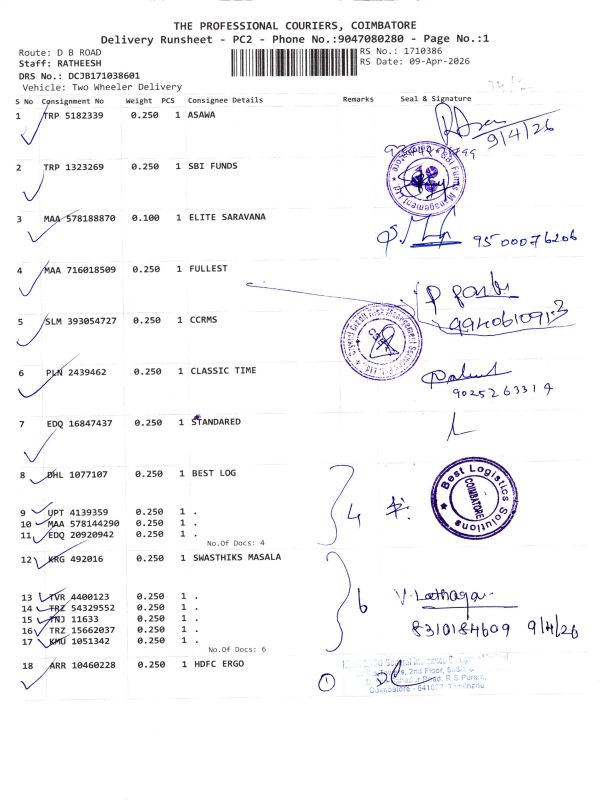 THE PROFESSIONAL COURIERS, COIMBATORE
Delivery Runsheet - PC2 - Phone No.:9047080280 - Page No.:1
Route: D B ROAD
RS No.: 1710386
Staff: RATHEESH
RS Date: 09-Apr-2026
DRS No.: DCJB171038601
Vehicle: Two Wheeler Delivery
S No Consignment No Weight PCS Consignee Details Remarks Seal & Signature
1 TRP 5182339 0.250 1 ASAWA
9/4/26
2 TRP 1323269 0.250 1 SBI FUNDS
3 MAA 578188870 0.100 1 ELITE SARAVANA
9500076206
4 MAA 716018509 0.250 1 FULLEST
5 SLM 393054727 0.250 1 CCRMS
6 PLN 2439462 0.250 1 CLASSIC TIME
9025263314
7 EDQ 16847437 0.250 1 STANDARED
8 DHL 1077107 0.250 1 BEST LOG
Best Logistics Solutions
COIMBATORE
9 UPT 4139359 0.250 1 .
4
10 MAA 578144290 0.250 1 .
11 EDQ 20920942 0.250 1 .
No.Of Docs: 4
12 KRG 492016 0.250 1 SWASTHIKS MASALA
13 TVR 4400123 0.250 1 .
6
14 TRZ 54329552 0.250 1 .
15 TNJ 11633 0.250 1 .
16 TRZ 15662037 0.250 1 .
8310184609 9/4/26
17 KMU 1051342 0.250 1 .
No.Of Docs: 6
18 ARR 10460228 0.250 1 HDFC ERGO
1
2nd Floor,
Road, R.S.Puram,
Coimbatore - 641002 Tamilnadu